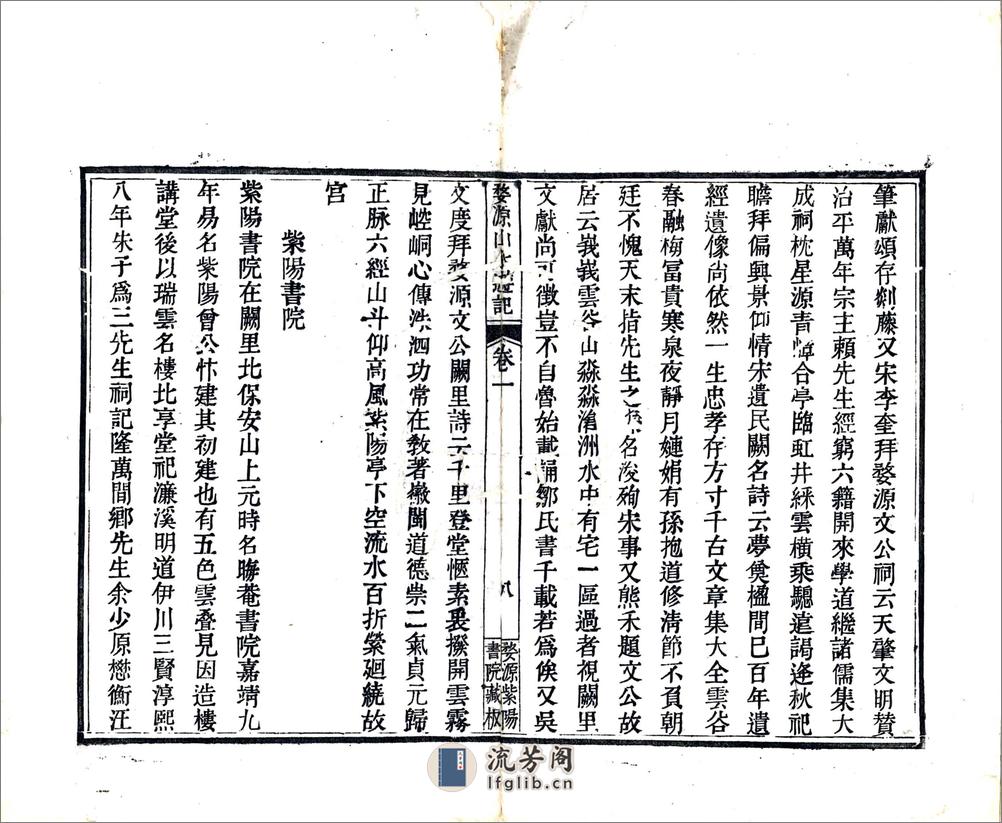 筆獻頌存剡藤又宋李奎拜婺源文公祠云天肇文明贊
治平萬年宗主賴先生經窮六籍開來學道繼諸儒集大
成祠枕星源青嶂合亭臨虹井綵雲橫乘驄遠謁逢秋祀
瞻拜偏興景仰情宋遺民闕名詩云夢奠楹間巳百年遺
經遺像尚依然一生忠孝存方寸千古文章集大全雲谷
春融梅富貴寒泉夜靜月嬋娟有孫抱道修清節不負朝
廷不愧天末指先生之孫名浚殉宋事又熊禾題文公故
居云峩峩雲谷山淼淼滄洲水中有宅一區過者視闕里
文獻尚可徵豈不自魯始載誦鄒氏書千載若為俟又吳
婺源山水遊記
卷一
八
婺源紫陽
書院藏板
文度拜婺源文公闕里詩云千里登堂愜素褱撥開雲霧
見崆峒心傳洙泗功常在敎著徽閩道德崇二氣貞元歸
正脉六經山斗仰高風紫陽亭下空流水百折縈廻繞故
宮
紫陽書院
紫陽書院在闕里北保安山上元時名晦菴書院嘉靖九
年易名紫陽曾公忭建其初建也有五色雲叠見因造樓
講堂後以瑞雲名樓北享堂祀濂溪明道伊川三賢淳熙
八年朱子爲三先生祠記隆萬間鄉先生余少原懋衡汪
流芳阁
lfglib.cn